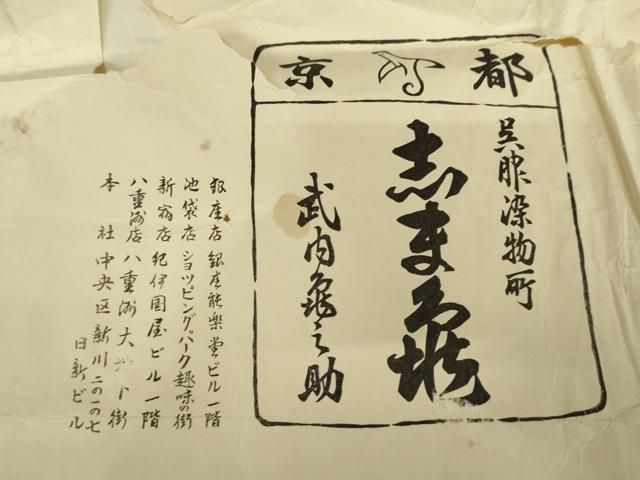 京都
呉服染物所
志ま亀
武内亀之助
銀座店 銀座能楽堂ビル一階
池袋店 ショッピングパーク趣味の街
新宿店 紀伊國屋ビル一階
八重洲店 八重洲大地下街
本社 中央区新川二の一の七
日新ビル